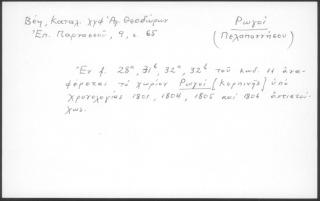 Βέη, Καταλ. χγφ Ἁγ. Θεοδώρων
Ἐπ. Παρνασσοῦ, 9, σ. 65
Ρωγοί
(Πελοποννήσου)
Ἐν φ. 28α, 31β, 32α, 32β τοῦ κωδ. 11 ἀνα-
φέρεται τὸ χωρίον Ρωγοί [Κερπινῆς] ὑπὸ
χρονολογίας 1801, 1804, 1805 καὶ 1806 ἀντιστοί-
χως.